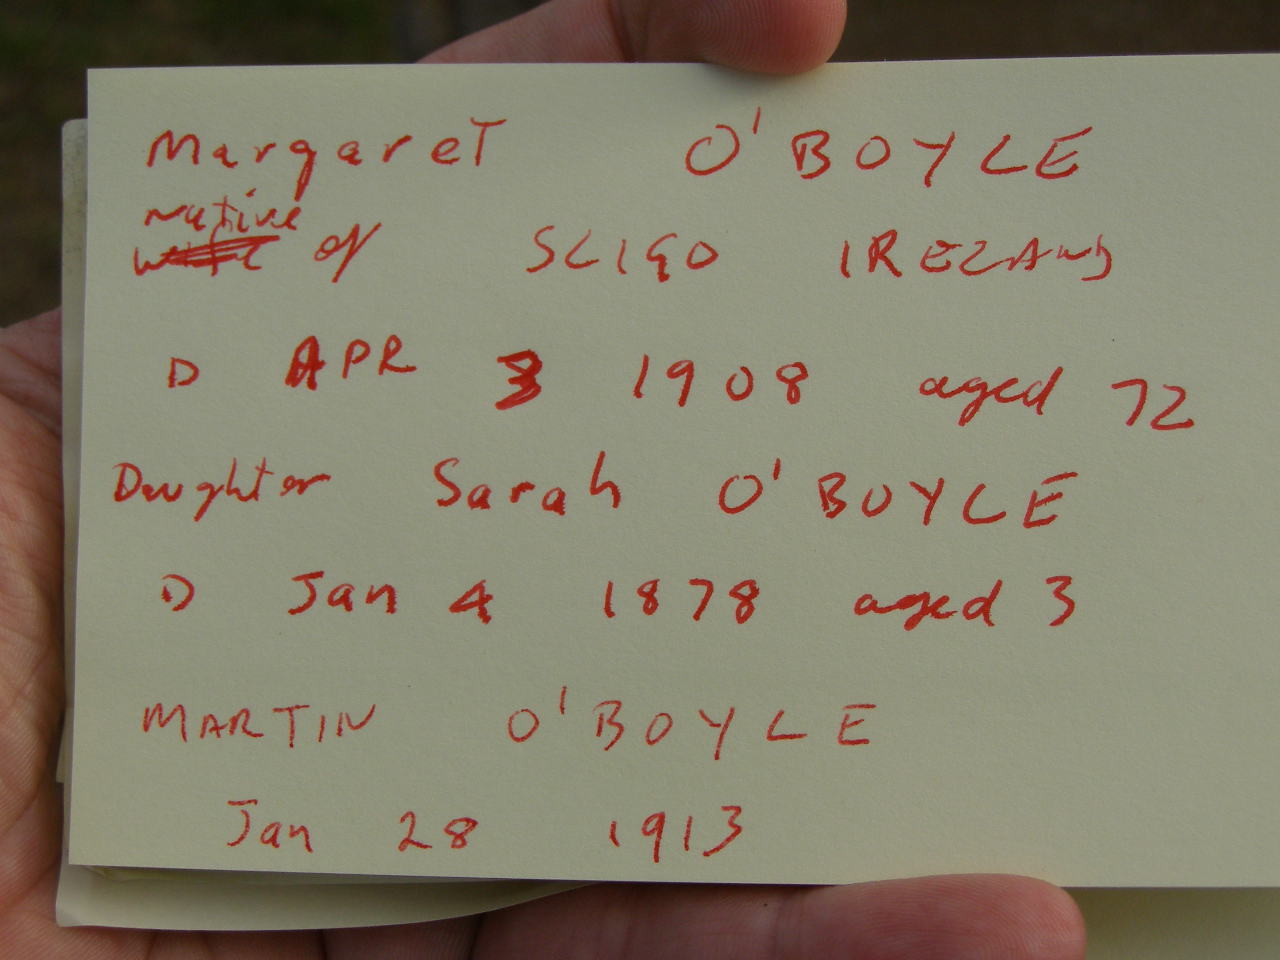 Margaret O'BOYLE
native
of SLIGO IRELAND
D APR 3 1908 aged 72
Daughter Sarah O'BOYLE
D Jan 4 1878 aged 3
MARTIN O'BOYLE
Jan 28 1913